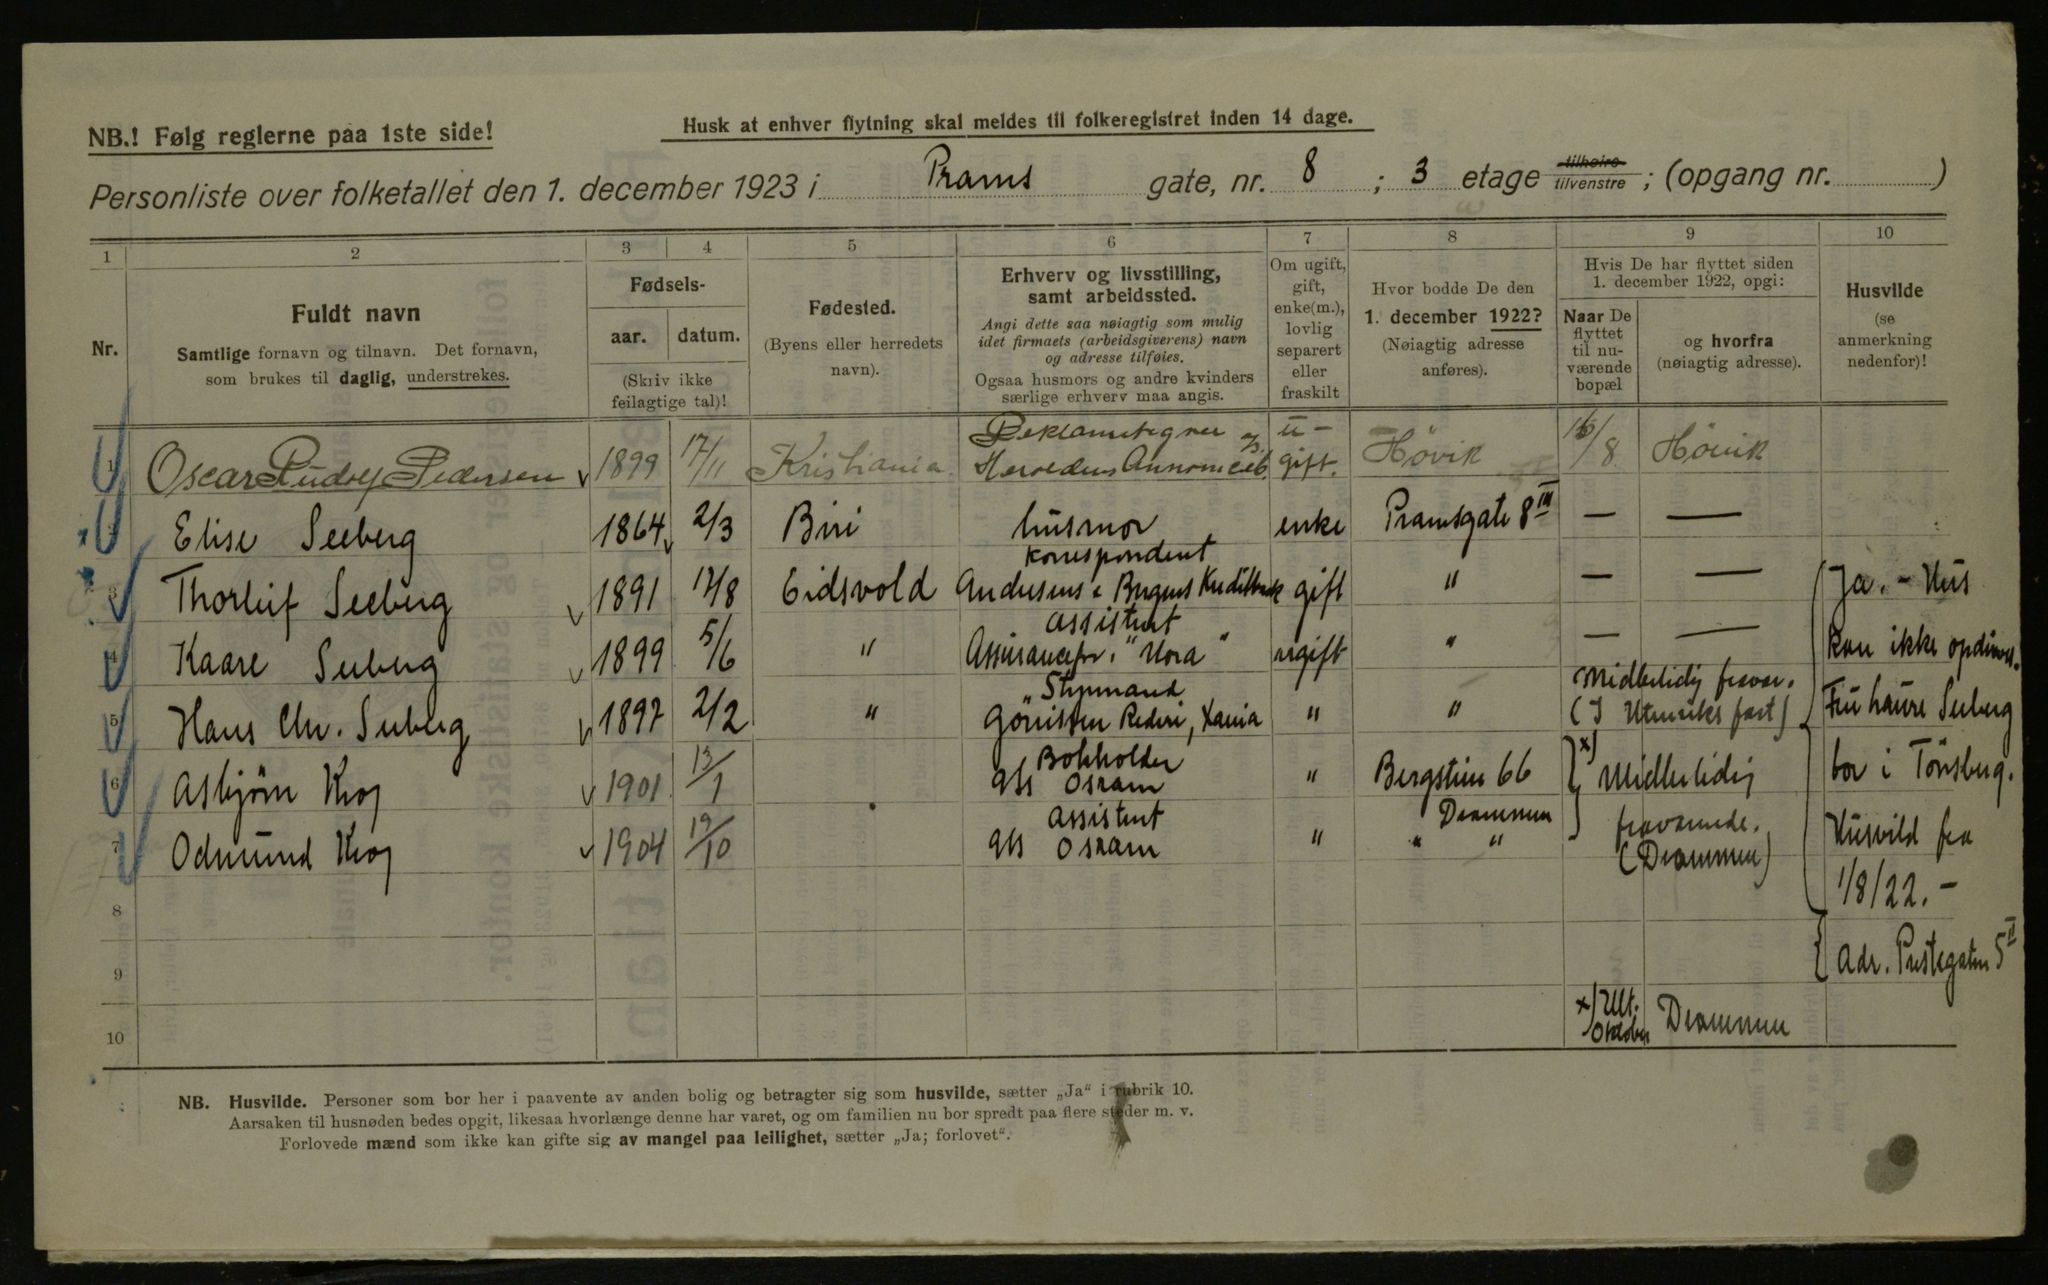 NB.! Følg reglerne paa 1ste side!
Husk at enhver flytning skal meldes til folkeregistret inden 14 dage.
Personliste over folketallet den 1. december 1923 i Prams gate, nr. 8 ; 3 etage tilhøire tilvenstre ; (opgang nr. )
1 2 3 4 5 6 7 8 9 10
Nr.
Fuldt navn
Samtlige fornavn og tilnavn. Det fornavn,
som brukes til daglig, understrekes.
Fødsels-
aar. datum.
(Skriv ikke
feilagtige tal)!
Fødested.
(Byens eller herredets
navn).
Erhverv og livsstilling,
samt arbeidssted.
Angi dette saa nøiagtig som mulig
idet firmaets (arbeidsgiverens) navn
og adresse tilføies.
Ogsaa husmors og andre kvinders
særlige erhverv maa angis.
Om ugift,
gift,
enke(m.),
lovlig
separert
eller
fraskilt
Hvor bodde De den
1. december 1922?
(Nøiagtig adresse
anføres).
Hvis De har flyttet siden
1. december 1922, opgi:
Naar De
flyttet
til nu-
værende
bopæl
og hvorfra
(nøiagtig adresse).
Husvilde
(se
anmerkning
nedenfor)!
1 Oscar Rudolf Pedersen 1899 17/11 Kristiania Reklametegner Heroldens u-gift. Høvik 16/8 Høvik
2 Elise Seeberg 1864 2/3 Biri husmor enke Pramsgate 8 III — —
3 Thorleif Seeberg 1891 17/8 Eidsvold Korrespondent Andresens & Bergens Kreditbank gift " — —
4 Kaare Seeberg 1899 5/6 " Assistent Assurancefor. "Nora" ugift " — —
5 Hans Chr. Seeberg 1897 2/2 " Styrmand Rederi, Xania " " Midlertidig fravær. (I Utenriks fart)
6 Asbjørn Krog 1901 13/1 Bokholder A/s Osram " Bergstien 66 Drammen x) Midlertidig
7 Odmund Krog 1904 19/10 Assistent A/s Osram " " " fraværende. (Drammen)
Ja. - Hus
kan ikke opdrives.
Fru Seeberg
bor i Tönsberg.
Husvild fra
1/8/22. -
8
9
Adr. Prestegaten 5 II
10
x) Ult. Oktober Drammen
NB. Husvilde. Personer som bor her i paavente av anden bolig og betragter sig som husvilde, sætter „Ja“ i rubrik 10.
Aarsaken til husnøden bedes opgit, likesaa hvorlænge denne har varet, og om familien nu bor spredt paa flere steder m. v.
Forlovede mænd som ikke kan gifte sig av mangel paa leilighet, sætter „Ja; forlovet“.